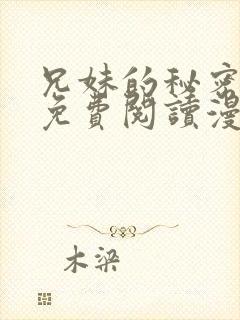 兄妹的秘密
免費閱讀漫
木梁